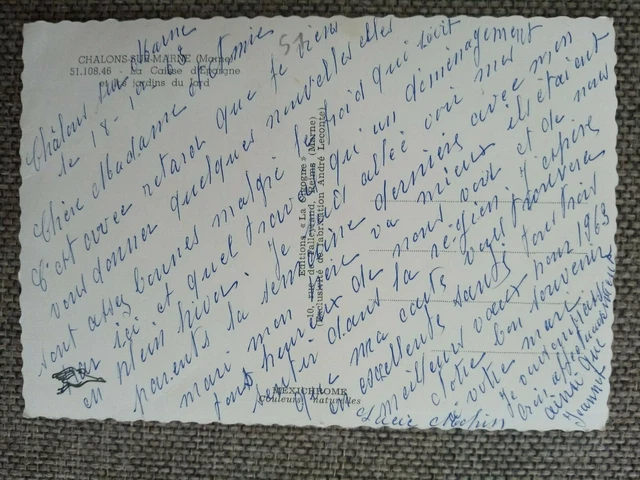 CHALONS-SUR-MARNE (Marne)
51.108.46 - La Caisse d'Epargne
et les jardins du Jard
51
Editions « La Cigogne »
10, rue de Talleyrand, Reims (Marne)
(Exclusivité de fabrication André Leconte)
MEXICHROME
Couleurs naturelles
Châlons sur Marne
le 18-1-63
Chère Madame et amie
C'est avec retard que je viens
vous donner quelques nouvelles elles
sont assez bonnes malgré le froid qui sévit
par ici et quel travail qu'un déménagement
en plein hiver. Je suis allée voir mes
parents la semaine dernière avec mon
mari mon père va mieux ils étaient
tous heureux de nous voir et de nous
sentir dans la région. J'espère
que ma carte vous trouvera
en excellente santé tous trois
meilleurs vœux pour 1963
bon souvenir
à votre mari
Je vous embrasse
bien affectueusement
ainsi que
Jeannot